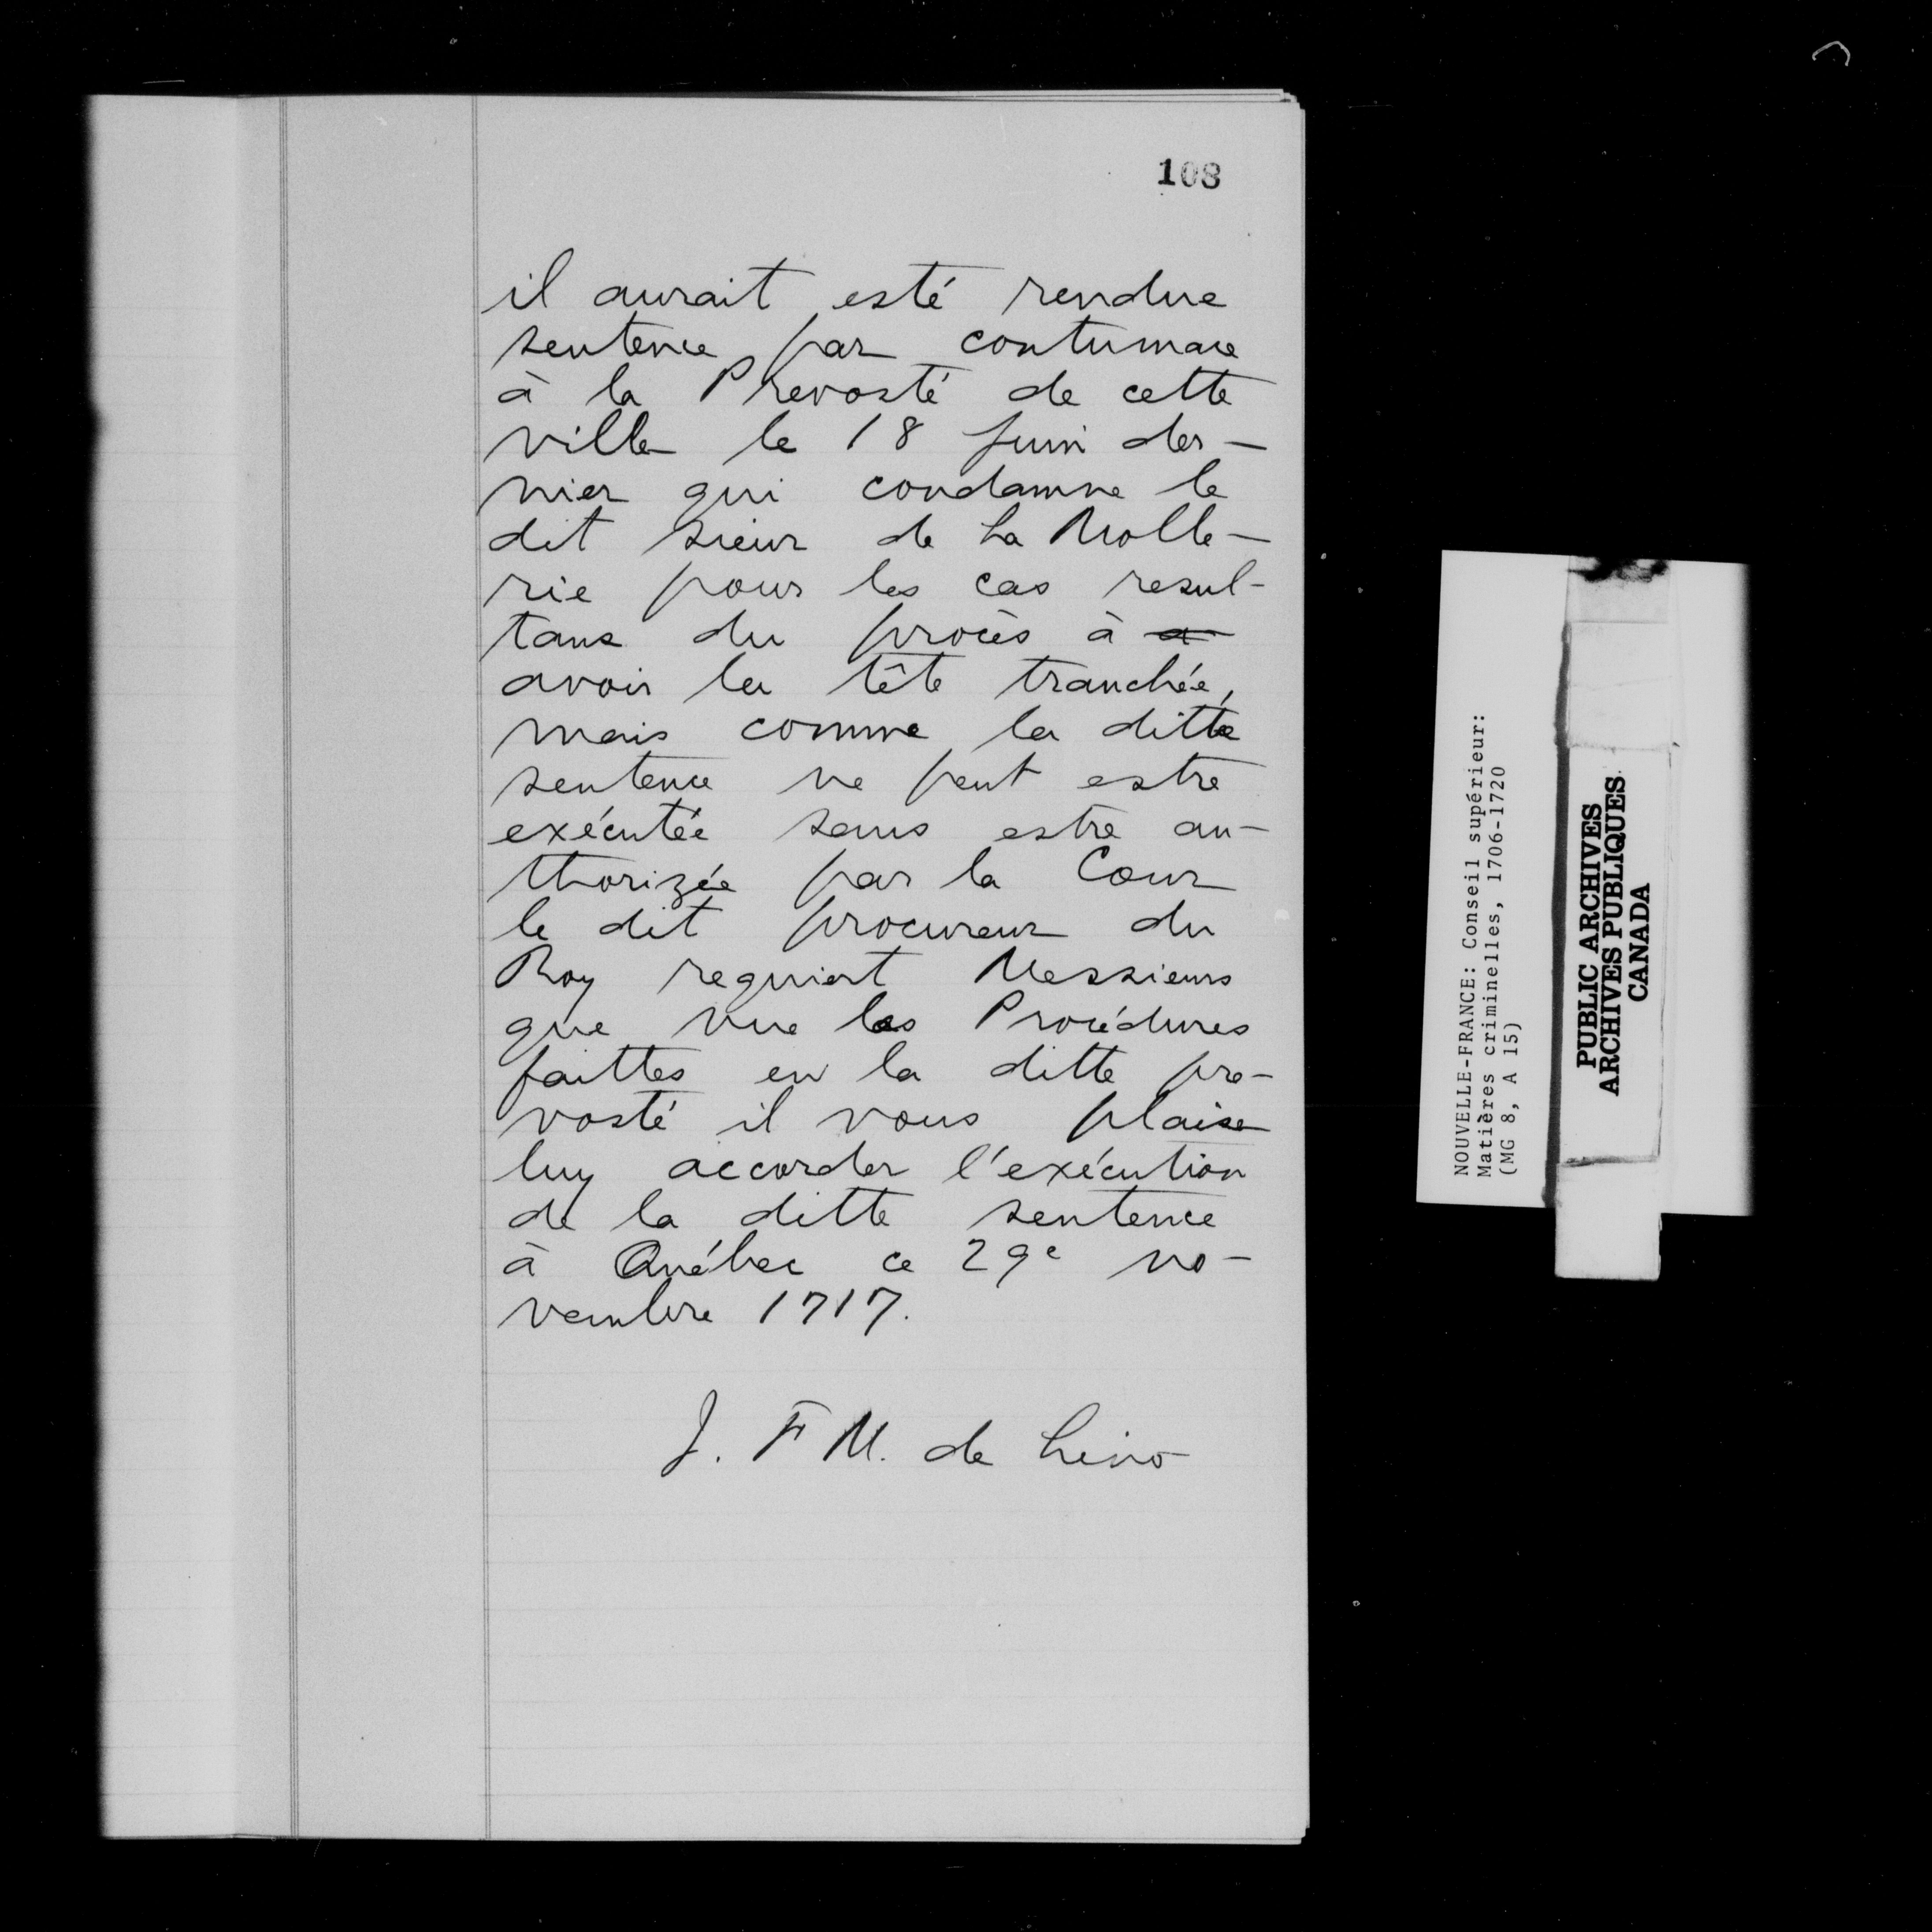 108
il aurait esté rendue
sentence par contumace
à la Prevosté de cette
ville le 18 Juin der-
nier qui condamne le
dit sieur de La Molle-
rie pour les cas resul-
tans du procès à a
avoir la tête tranchée,
mais comme la ditte
sentence ne peut estre
exécutée sans estre au-
thorizée par la Cour
le dit procureur du
Roy requiert Messieurs
que vue les Procédures
faittes en la ditte pre-
vosté il vous plaise
luy accorder l'exécution
de la ditte sentence
à Québec ce 29e no-
vembre 1717.
J. F M. de Lino
NOUVELLE-FRANCE: Conseil supérieur:
Matières criminelles, 1706-1720
(MG 8, A 15)
PUBLIC ARCHIVES
ARCHIVES PUBLIQUES
CANADA